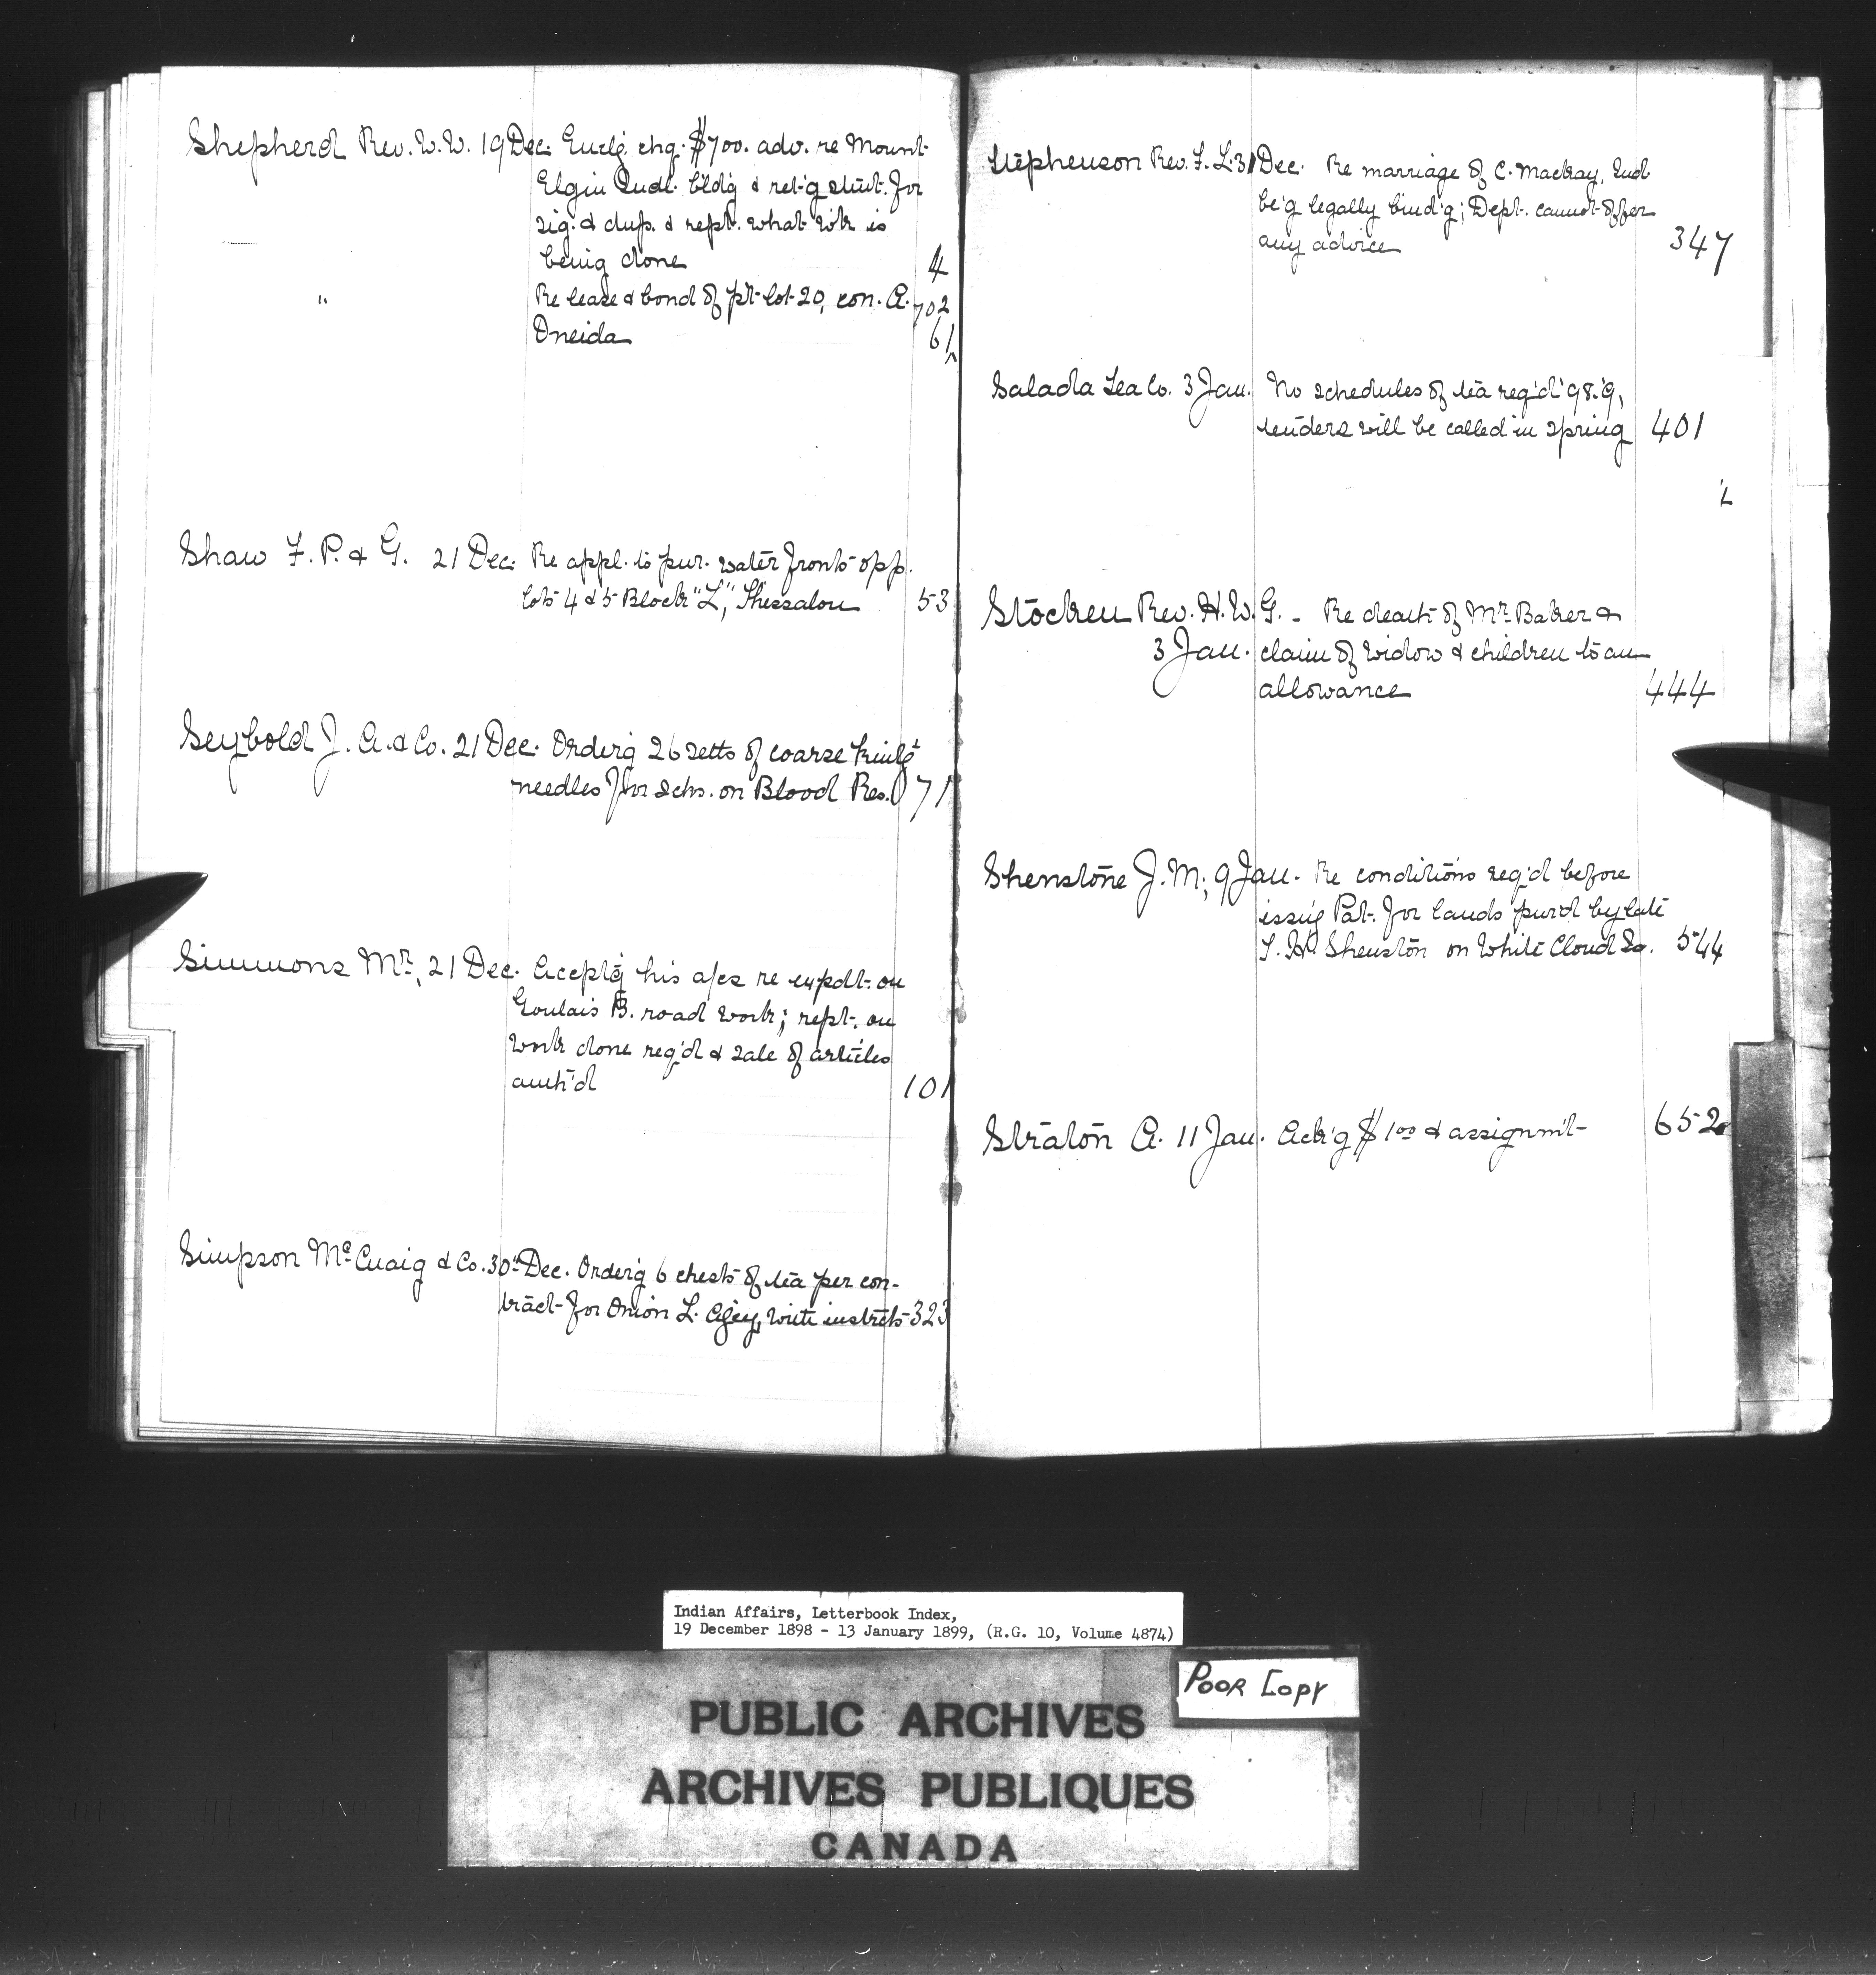 Shepherd Rev. W. W. 19 Dec. Enclg. chq. $700. adv. re Mount
Elgin Indl. b'ld'g & ret'g stmt. for
sig. & dup. & rept. what wk is
being done 4
" Re lease & bond of pt. lot 20, con. A. 702
Oneida 61
Shaw F. P. & G. 21 Dec. Re appl. to pur. water fronts opp.
lots 4 & 5 Block "L", Thessalon 53
Seybold J. A. & Co. 21 Dec. Order'g 26 setts of coarse knit'g
needles for schs. on Blood Res. 71
Simmons Mr., 21 Dec. Accept'g his a/cs re expdt. on
Goulais B. road work; rept. on
work done req'd & sale of articles
auth'd 101
Simpson McCuaig & Co. 30 Dec. Order'g 6 chests of tea per con-
tract for Onion L. Agcy, with instrcts 323
Stephenson Rev. F. L. 31 Dec. Re marriage of C. Mackay, Ind.
be'g legally bind'g; Dept. cannot offer
any advice 347
Salada Tea Co. 3 Jan. No schedules of tea req'd '98-'9,
tenders will be called in spring 401
Stocken Rev. H. W. G. - Re death of Mr. Baker &
3 Jan. claim of widow & children to an
allowance 444
Shenstone J. M., 9 Jan. Re conditions req'd before
issu'g Pat. for lands pur'd by late
T. H. Shenston on White Cloud Id. 544
Straton A. 11 Jan. Ack'g $1.00 & assignm't 652
Indian Affairs, Letterbook Index,
19 December 1898 - 13 January 1899, (R.G. 10, Volume 4874)
POOR COPY
PUBLIC ARCHIVES
ARCHIVES PUBLIQUES
CANADA